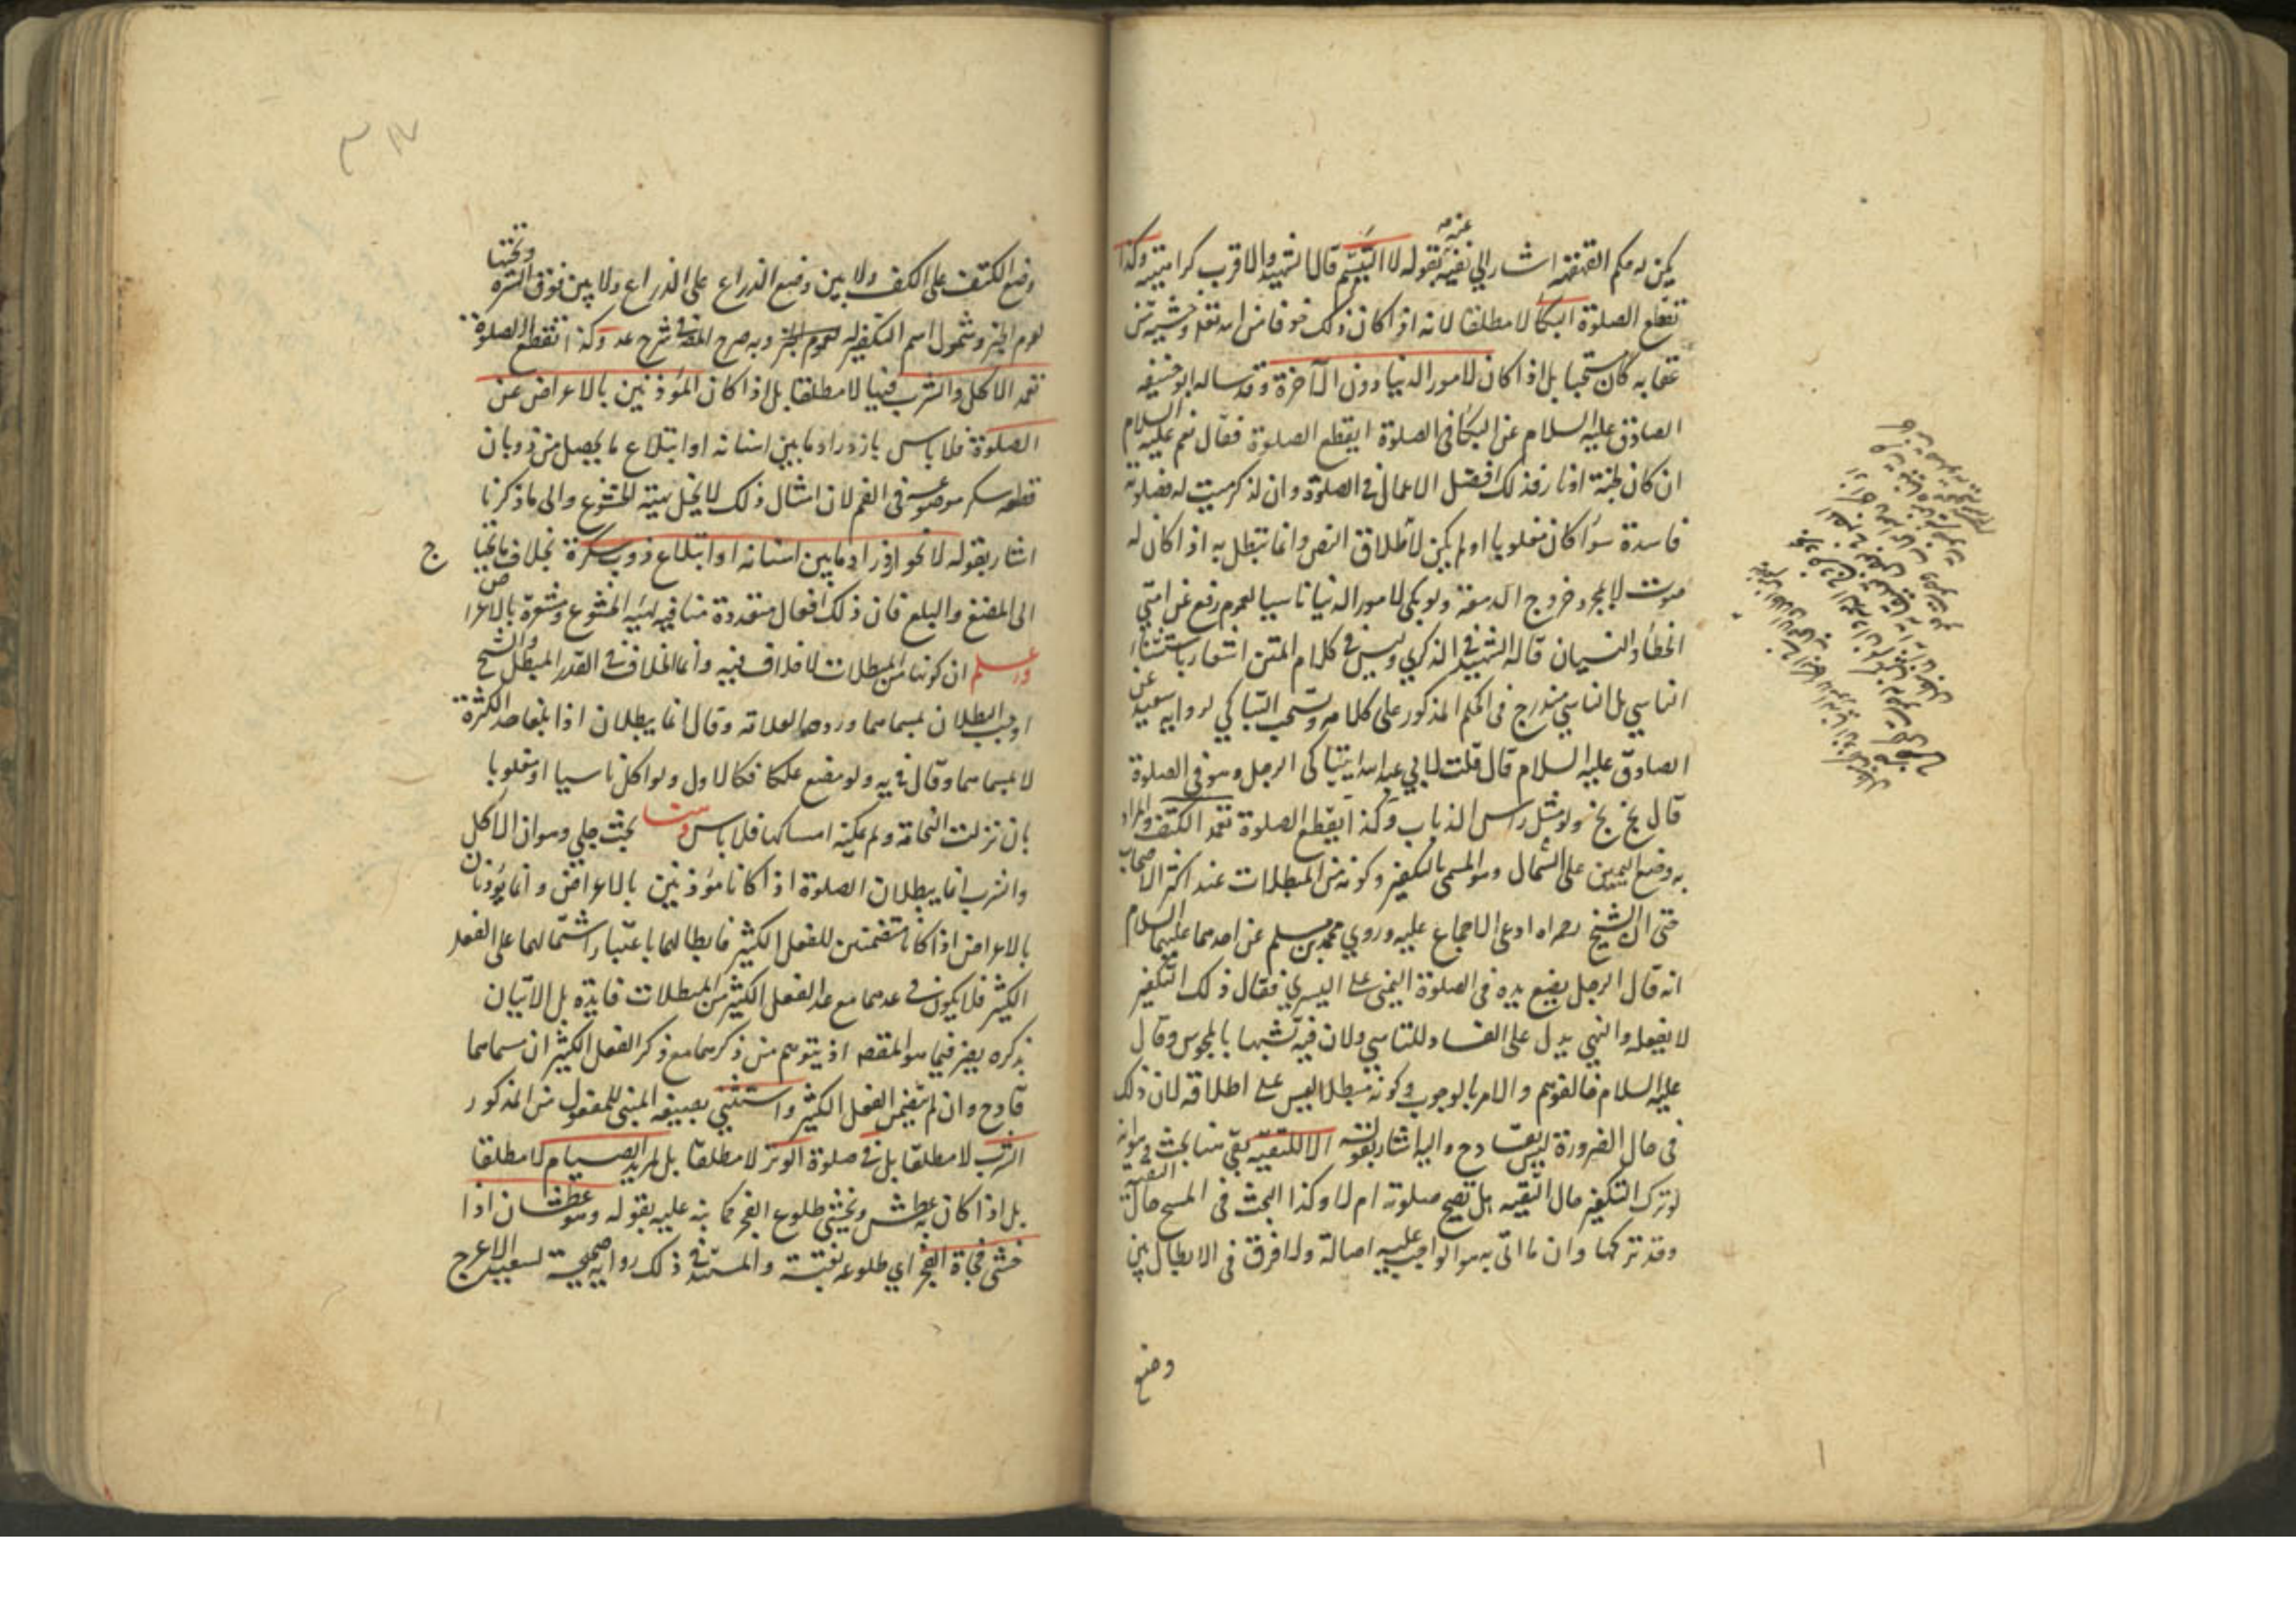 يكن له حكم القهقهة اشار الي نفيه عنه بقوله لا التبسم قال الشهيد والاقرب كراهيته وكذا
تقطع الصلوة البكا لا مطلقا لانه اذا كان ذلك خوفا من الله تعالى وخشية من
عقابه كان مستحبا بل اذا كان لامور الدنيا دون الآخرة وقد ساله ابو حنيفه
الصادق عليه السلام عن البكا في الصلوة ايقطع الصلوة فقال نعم عليه السلام
ان كان لجنة او نار فذلك افضل الاعمال في الصلوة وان لذكر ميت له فصلوته
فاسدة سوا كان مغلوبا او لم يكن لاطلاق النص وانما تبطل به اذا كان له
صوت لا بمجرد خروج الدمعة ولو بكى لامور الدنيا ناسيا لعموم رفع عن امتي
الخطا والنسيان قاله الشهيد في الذكري وليس في كلام المتن اشعار باستثناء
الناسي بل الناسي مندرج في الحكم المذكور على كلامه ويستحب التباكي لرواية سعيد عن
الصادق عليه السلام قال قلت لابي عبد الله ايتباكى الرجل وهو في الصلوة
قال بخ بخ ولو مثل راس الذباب وكذا يقطع الصلوة تعمد الكتف والمراد
به وضع اليمين على الشمال وهو المسمى بالتكفير وكونه من المبطلات عند اكثر الاصحاب
حتى ان الشيخ رحمه الله ادعى الاجماع عليه وروي محمد بن مسلم عن احدهما عليهما السلام
انه قال الرجل يضع يده في الصلوة اليمنى على اليسري فقال ذلك التكفير
لا يفعله والنهي يدل على الفساد وللتاسي ولان فيه تشبها بالمجوس وقال
عليه السلام خالفوهم والامر بالوجوب وكونه مبطلا ليس على اطلاقه لان ذلك
في حال الضرورة ليس بقادح واليه اشار بقوله الا لتقية بقي هنا بحث وهو انه
لو ترك التكفير حال التقيه هل تصح صلوته ام لا وكذا البحث في المسح حال التقيه
وقد تركها وان ما اتى به هو الواجب عليه اصالة ولا فرق في الابطال بين
وضع
وضع الكتف على الكتف ولا بين وضع الذراع على الذراع ولا بين فوق السرة وتحتها
لعموم الخبر وشمول اسم التكفير له وبه صرح المص في شرح عد وكذا تقطع الصلوة
تعمد الاكل والشرب فيها لا مطلقا بل اذا كان المؤذنين بالاعراض عن
الصلوة فلا باس بازدراد ما بين اسنانه او ابتلاع ما يحصل من ذوبان
قطعة سكر موضوعة في الفم لان امثال ذلك لا يخل بهيئة الخشوع والى ما ذكرنا
اشار بقوله لا نحو ازدراد ما بين اسنانه او ابتلاع ذوب سكرة بخلاف ما يحتاج
الى المضغ والبلع فان ذلك افعال متعددة منافيه لهيئة الخشوع ومشعرة بالاعراض
واعلم ان كونهما من المبطلات لا خلاف فيه وانما الخلاف في القدر المبطل والشيخ
اوجب البطلان بمسماهما وردهما العلامه وقال انما يبطلان اذا بلغا حد الكثرة
لا بمسماهما وقال في يه ولو مضغ علكا فكالاول ولو اكل ناسيا او مغلوبا
بان نزلت النخامة ولم يمكنه امساكها فلا باس وهنا بحث جلي وهو ان الاكل
والشرب انما يبطلان الصلوة اذا كانا مؤذنين بالاعراض وانما يؤذنان
بالاعراض اذا كانا متضمنين للفعل الكثير فابطالهما باعتبار اشتمالهما على الفعل
الكثير فلا يكون في عدهما مع عد الفعل الكثير من المبطلات فايدة بل الاتيان
بذكره يضر فيما هو المقصد اذ يتوهم من ذكرهما مع ذكر الفعل الكثير ان مسماهما
قادح وان لم يتضمن الفعل الكثير واستثني بصيغة المبني للمفعول من المذكور
الشرب لا مطلقا بل في صلوة الوتر لا مطلقا بل لمريد الصيام لا مطلقا
بل اذا كان به عطش ويخشى طلوع الفجر كما نبه عليه بقوله وهو عطشان اذا
خشى فجاة الفجر اي طلوعه بغتة والمستند في ذلك رواية صحيحة لسعيد الاعرج